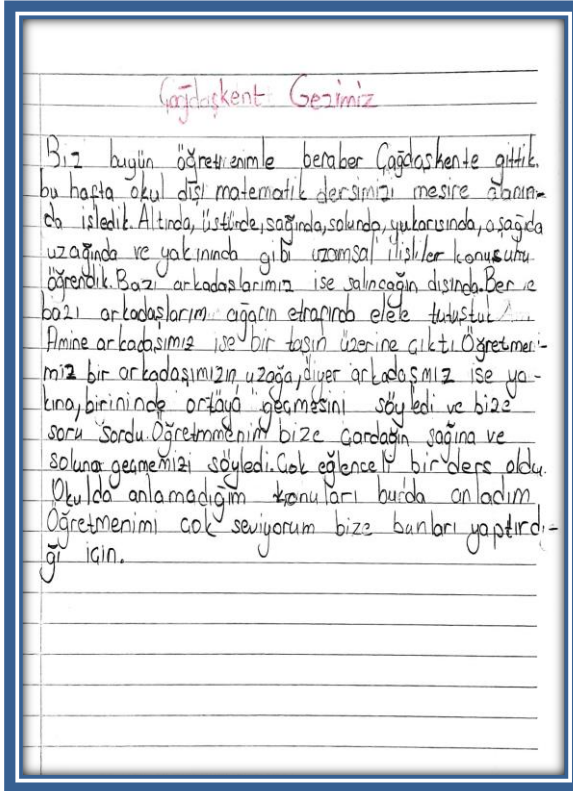 Çağdaşkent Gezimiz
Biz bugün öğretmenimle beraber Çağdaşkente gittik.
bu hafta okul dışı matematik dersimizi mesire alanın-
da işledik. Altında, üstünde, sağında, solunda, yukarısında, aşağıda
uzağında ve yakınında gibi uzamsal ilişliler konusunu
öğrendik. Bazı arkadaşlarımız ise salıncağın dışında. Ben ve
bazı arkadaşlarım ağacın etrafında elele tutuştuk
Amine arkadaşımız ise bir taşın üzerine çıktı. Öğretmeni-
miz bir arkadaşımızın, uzağa, diyer arkadaşmız ise ya-
kına, birininde ortaya geçmesini söyledi ve bize
soru sordu. Öğretmmenim bize çardağın sağına ve
soluna geçmemizi söyledi. Çok eğlenceli bir ders oldu.
Okulda anlamadığım konuları burda anladım
Öğretmenimi çok seviyorum bize bunları yaptırdı-
ğı için.